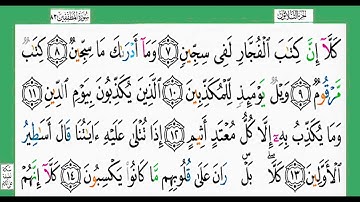 الجزء الثلاثون
سورة المطففين ٨٣
كَلَّآ إِنَّ كِتَٰبَ ٱلْفُجَّارِ لَفِى سِجِّينٍ ٧ وَمَآ أَدْرَىٰكَ مَا سِجِّينٌ ٨ كِتَٰبٌ
مَّرْقُومٌ ٩ وَيْلٌ يَوْمَئِذٍ لِّلْمُكَذِّبِينَ ١٠ ٱلَّذِينَ يُكَذِّبُونَ بِيَوْمِ ٱلدِّينِ ١١
وَمَا يُكَذِّبُ بِهِۦٓ إِلَّا كُلُّ مُعْتَدٍ أَثِيمٍ ١٢ إِذَا تُتْلَىٰ عَلَيْهِ ءَايَٰتُنَا قَالَ أَسَٰطِيرُ
ٱلْأَوَّلِينَ ١٣ كَلَّا ۖ بَلْ ۜ رَانَ عَلَىٰ قُلُوبِهِم مَّا كَانُوا۟ يَكْسِبُونَ ١٤ كَلَّآ إِنَّهُمْ